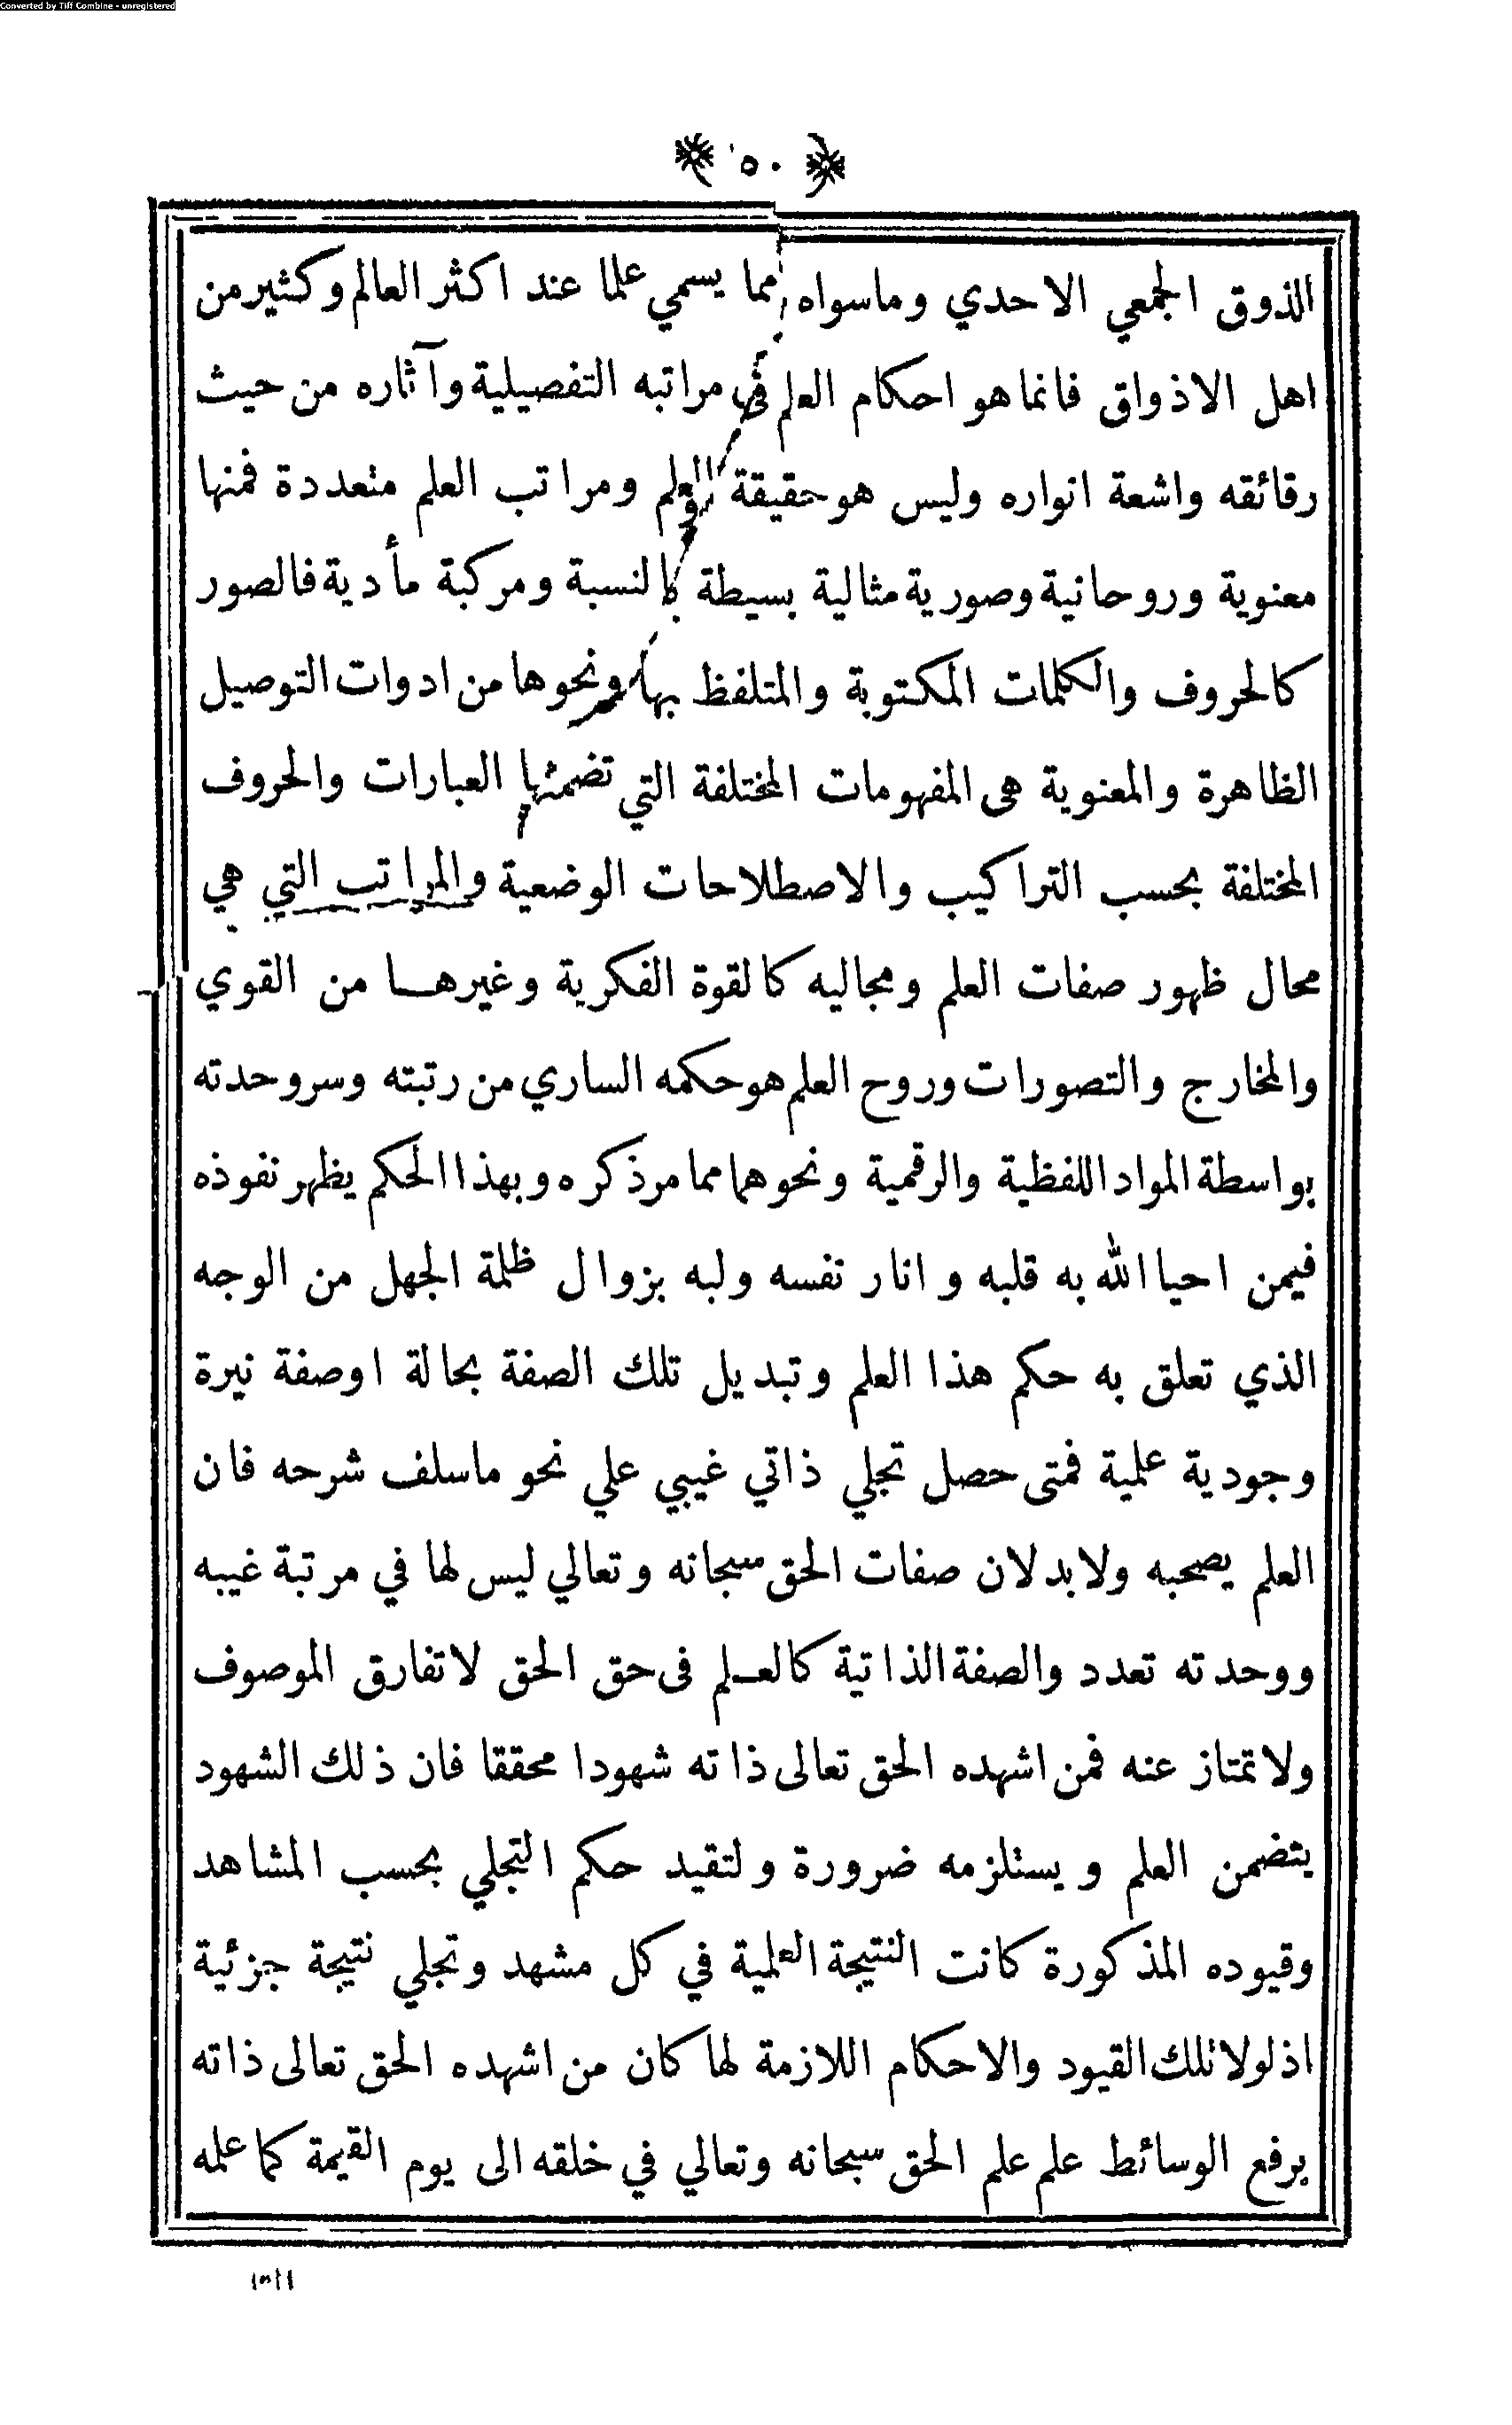 Converted by Tiff Combine - unregistered
٥٠
الذوق الجمعي الاحدي وماسواه مما يسمي علما عند اكثر العالم وكثيرمن
اهل الاذواق فانما هو احكام العلم فى مراتبه التفصيلية وآثاره من حيث
رقائقه واشعة انواره وليس هو حقيقة العلم ومراتب العلم متعددة فمنها
معنوية وروحانية وصورية مثالية بسيطة بالنسبة ومركبة مأدية فالصور
كالحروف والكلمات المكتوبة والمتلفظ بها ونحوها من ادوات التوصيل
الظاهرة والمعنوية هى المفهومات المختلفة التي تضمنها العبارات والحروف
المختلفة بحسب التراكيب والاصطلاحات الوضعية والمراتب التي هي
محال ظهور صفات العلم ومجاليه كالقوة الفكرية وغيرها من القوي
والمخارج والتصورات وروح العلم هو حكمه الساري من رتبته وسر وحدته
بواسطة المواد اللفظية والرقمية ونحوهما مما مر ذكره وبهذا الحكم يظهر نفوذه
فيمن احيا الله به قلبه وانار نفسه ولبه بزوال ظلمة الجهل من الوجه
الذي تعلق به حكم هذا العلم وتبديل تلك الصفة بحالة اوصفة نيرة
وجودية علمية فمتى حصل تجلي ذاتي غيبي علي نحو ماسلف شرحه فان
العلم يصحبه ولابد لان صفات الحق سبحانه وتعالي ليس لها في مرتبة غيبه
ووحدته تعدد والصفة الذاتية كالعلم فى حق الحق لاتفارق الموصوف
ولا تمتاز عنه فمن اشهده الحق تعالى ذاته شهودا محققا فان ذلك الشهود
يتضمن العلم ويستلزمه ضرورة ولتقيد حكم التجلي بحسب المشاهد
وقيوده المذكورة كانت النتيجة العلمية في كل مشهد وتجلي نتيجة جزئية
اذ لولا تلك القيود والاحكام اللازمة لها كان من اشهده الحق تعالى ذاته
برفع الوسائط علم علم الحق سبحانه وتعالي في خلقه الى يوم القيمة كما علمه